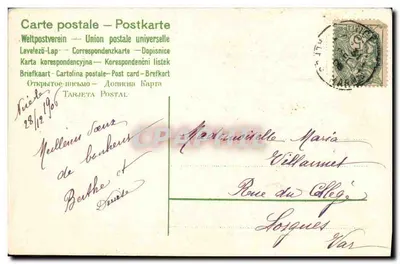 Carte postale – Postkarte
Weltpostverein – Union postale universelle
Levelező-Lap – Correspondenzkarte – Dopisnice
Karta korespondencyjna – Korespondenční lístek
Briefkaart – Cartolina postale – Post card – Brefkort
Открытое письмо – Дописна Карта
Tarjeta Postal
28/12 1906
Meilleurs vœux
de bonheur
Berthe et
Mademoiselle Maria
Rue du Collége
Lorgues
Var